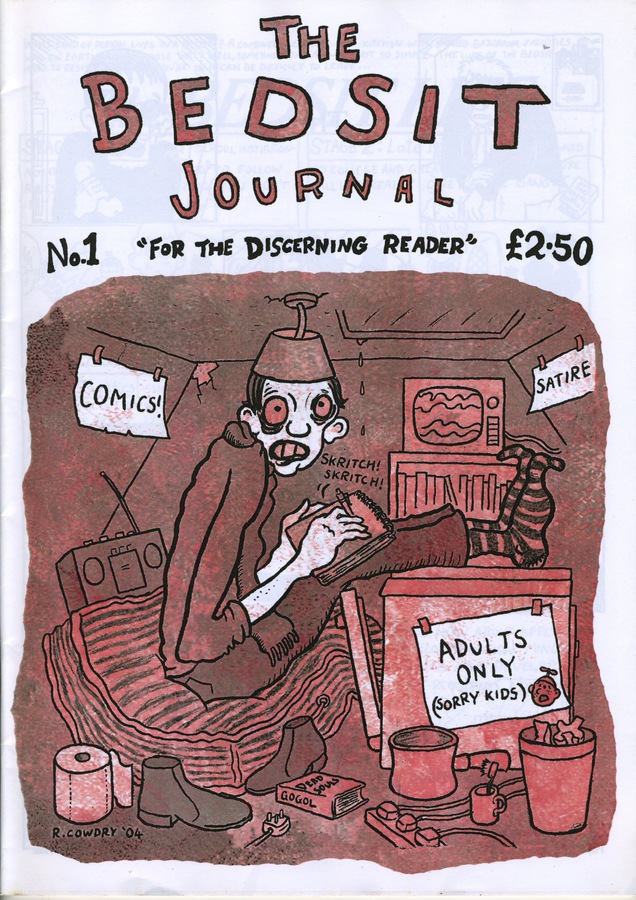 THE
BEDSIT
JOURNAL
No.1 "FOR THE DISCERNING READER" £2·50
COMICS!
SATIRE
SKRITCH!
SKRITCH!
ADULTS
ONLY
(SORRY KIDS)
DEAD
SOULS
GOGOL
R.COWDRY '04